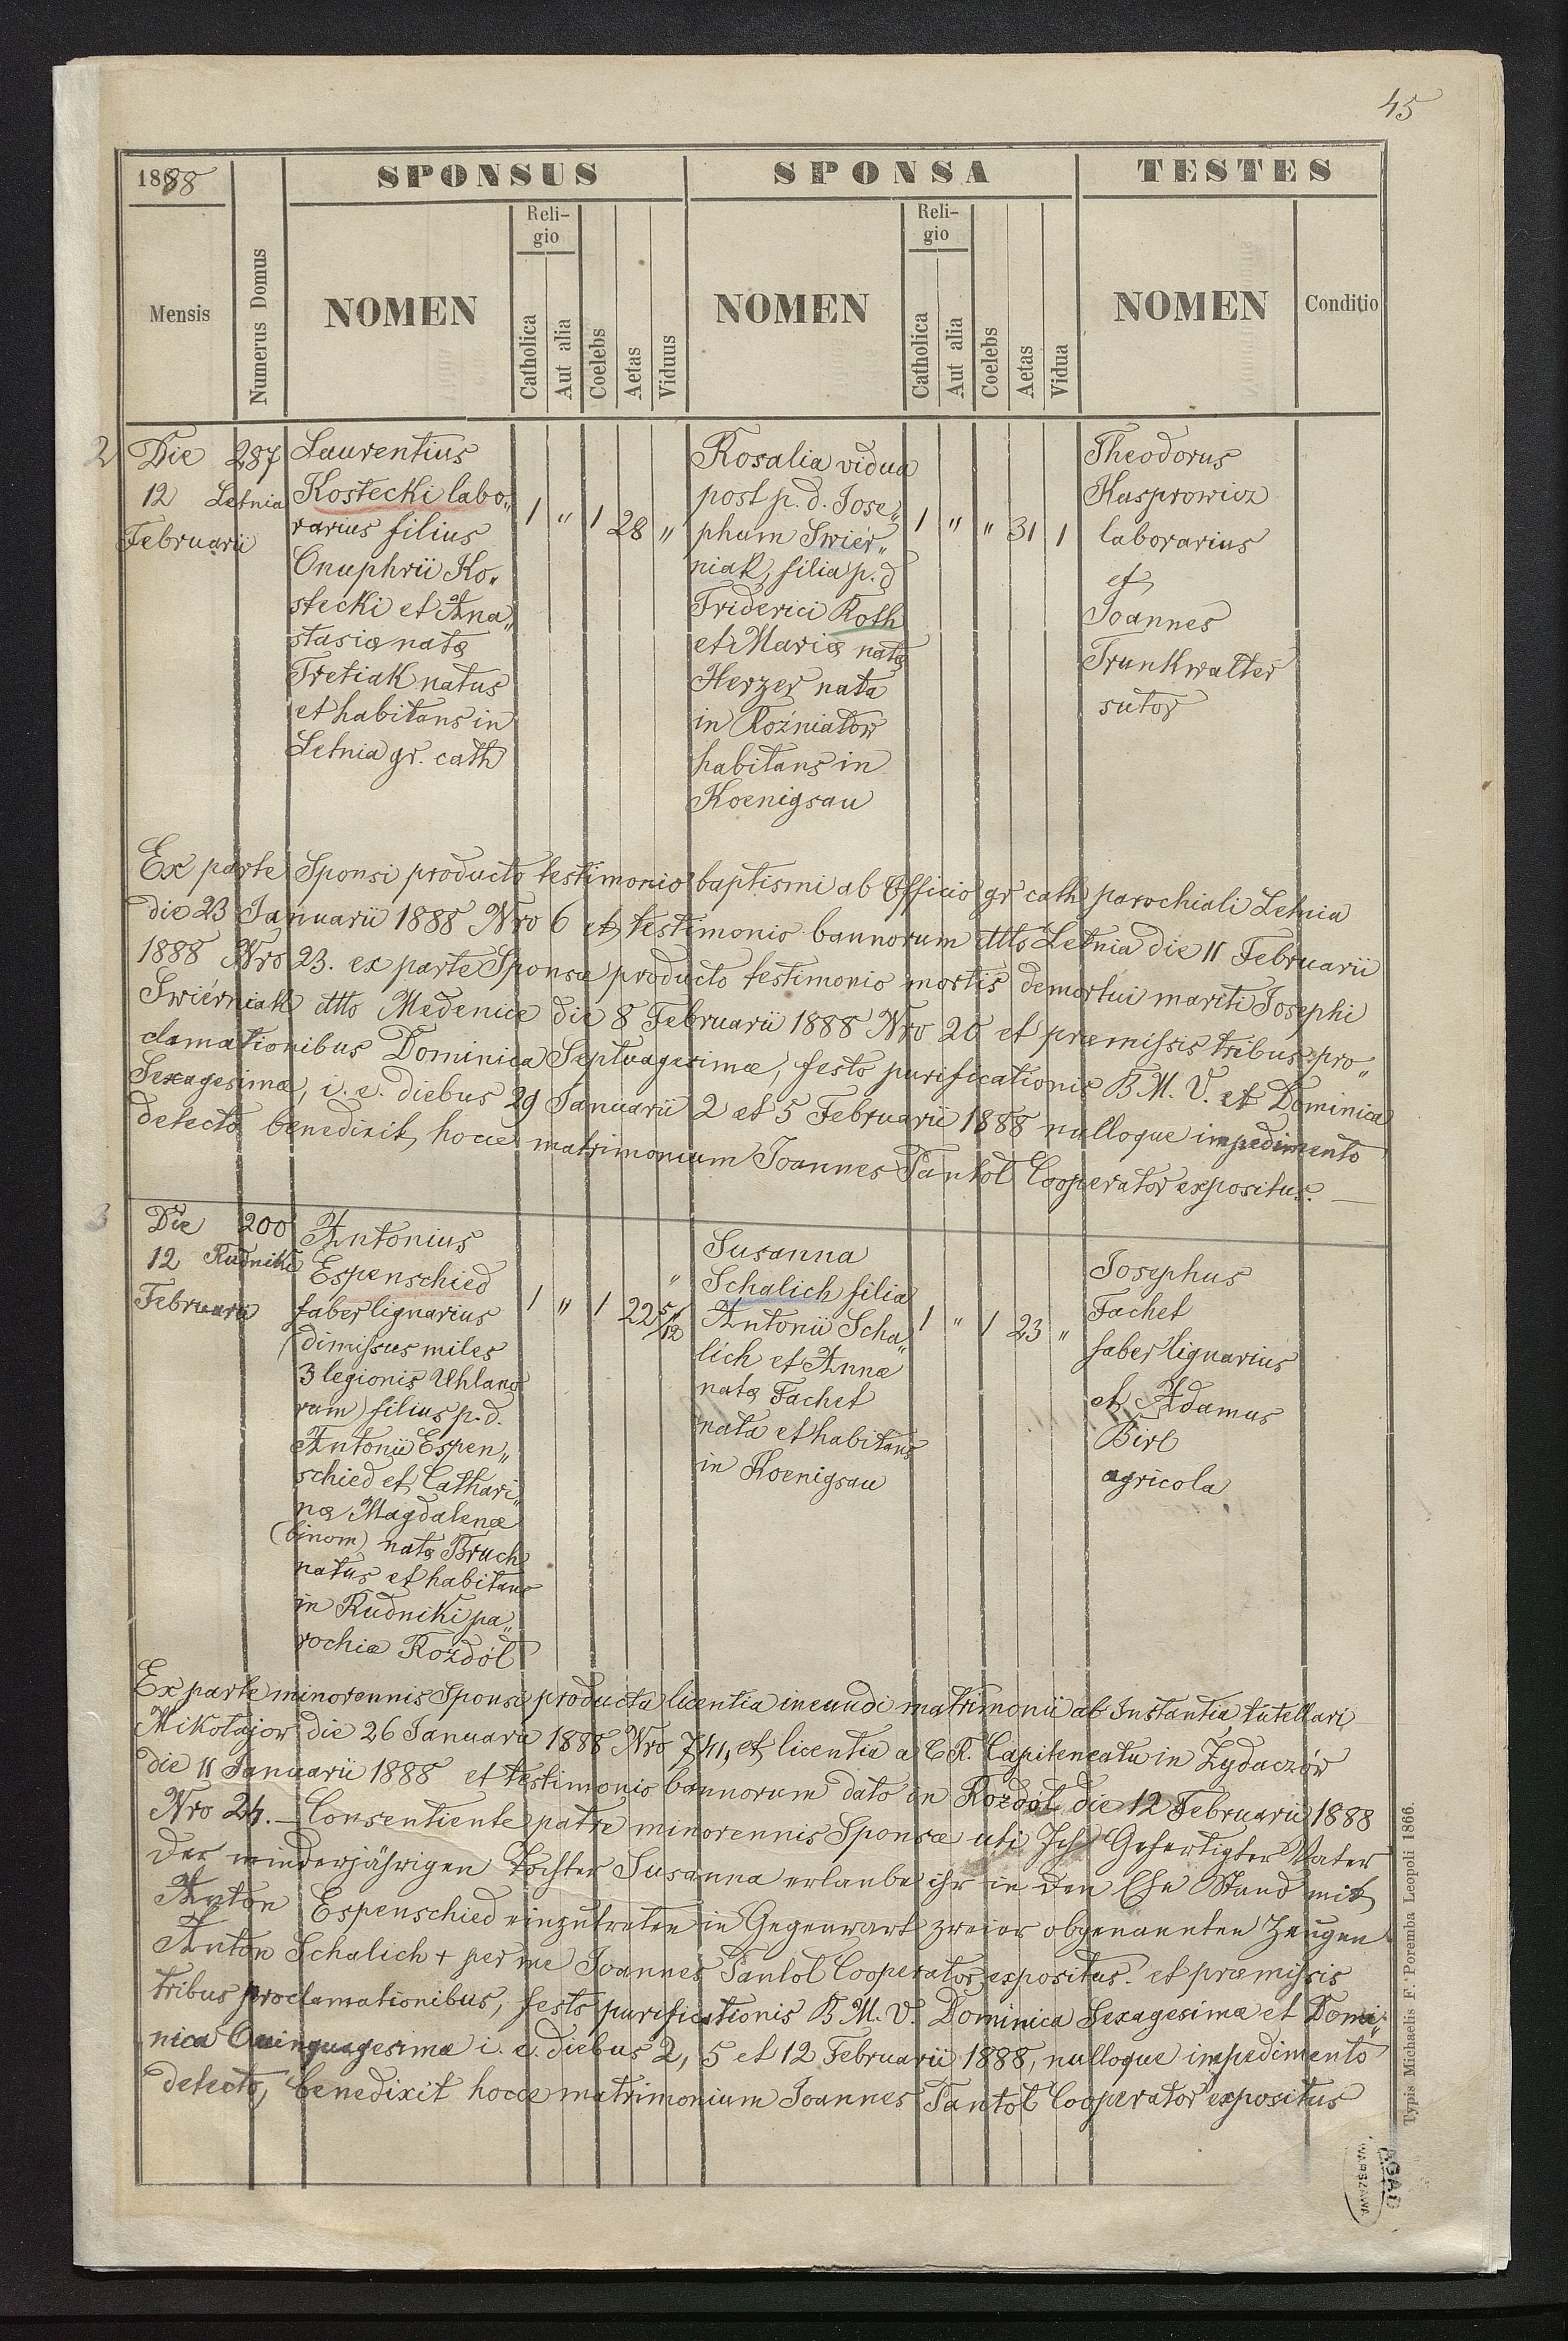 45
1888
SPONSUS
SPONSA
TESTES
Mensis
Numerus Domus
NOMEN
Religio
Catholica
Aut alia
Coelebs
Aetas
Viduus
NOMEN
Religio
Catholica
Aut alia
Coelebs
Aetas
Vidua
NOMEN
Conditio
2
Die
12
Februarii
287
Letnia
Laurentius
Kostecki labo„
rarius filius
Onuphrii Ko„
stecki et Ana„
stasiæ natæ
Tretiak natus
et habitans in
Letnia gr. cath
1 " 1 28 "
Rosalia vidua
post p. d. Jose„
phum Swiér„
niak, filia p. d
Friderici Roth
et Mariæ natæ
Herzer nata
in Rożniatow
habitans in
Koenigsau
1 " " 31 1
Theodorus
Kasprowicz
laborarius
et
Joannes
Trunkwalter
sutor
Ex parte Sponsi producto testimonio baptismi ab Officio gr cath parochiali Letnia
die 23 Januarii 1888 Nro 6 et testimonio bannorum dtto Letnia die 11 Februarii
1888 Nro 23. ex parte Sponsæ producto testimonio mortis demortui mariti Josephi
Swiérniak dtto Medenice die 8 Februarii 1888 Nro 20 et præmissis tribus pro„
clamationibus Dominica Septuagesimæ, festo purificationis B. M. V. et Dominica
Sexagesimæ, i. e. diebus 29 Januarii 2 et 5 Februarii 1888 nulloque impedimento
detecto benedixit hocce matrimonium Joannes Pantoł Cooperator expositus. —
3
Die
12
Februarii
200
Rudniki
Antonius
Espenschied
faber lignarius
(dimissus miles
3 legionis Uhlano
rum) filius p. d.
Antonii Espen„
schied et Cathari„
næ Magdalenæ
(binom) natæ Bruch
natus et habitans
in Rudniki pa„
rochiæ Rozdół
1 " 1 22 5/12 "
Susanna
Schalich filia
Antonii Scha„
lich et Annæ
natæ Fachet
nata et habitans
in Koenigsau
1 " 1 23 "
Josephus
Fachet
faber lignarius
et Adamus
Birl
agricola
Ex parte minorennis Sponsi producta licentia ineundi matrimonii ab Instantia tutellari
Mikołajow die 26 Januarii 1888 Nro 741, et licentia a C R. Capiteneatu in Zydaczów
die 11 Januarii 1888 et testimonio bannorum dato in Rozdół die 12 Februarii 1888
Nro 24. — Consentiente patre minorennis Sponsæ uti Ich Gefertigter Vater
der minderjährigen Tochter Susanna erlaube ihr in den Ehe Stand mit
Anton Espenschied einzutreten in Gegenwart zweier obgenannten Zeugen
Anton Schalich + per me Joannes Pantoł Cooperator expositus. et præmissis
tribus proclamationibus, festo purificationis B. M. V. Dominica Sexagesimæ et Domi„
nica Quinquagesimæ i. e. diebus 2, 5 et 12 Februarii 1888, nulloque impedimento
detecto, benedixit hocce matrimonium Joannes Pantoł Cooperator expositus
Typis Michaelis F. Poremba Leopoli 1866.
AGAD
WARSZAWA